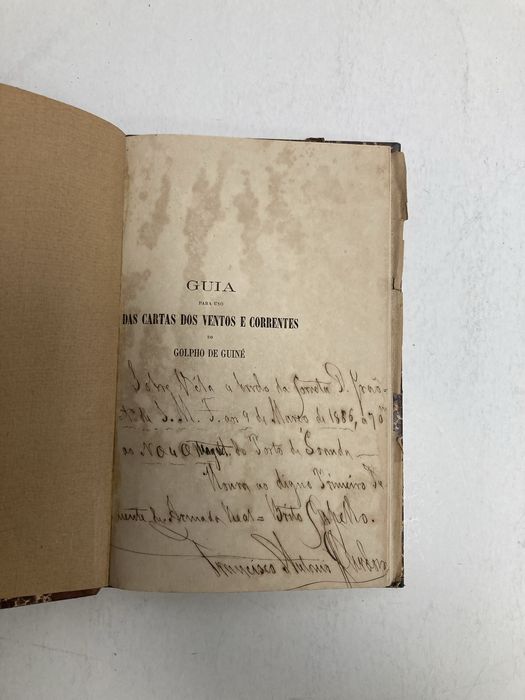 GUIA
PARA USO
DAS CARTAS DOS VENTOS E CORRENTES
DO
GOLPHO DE GUINÉ
Sobre Véla a bordo da Corveta D.
S. M. F. aos 9 de Março de 1886, a 70
ao N O do Porto de Loanda
Honra ao digno Primeiro Te
nente da Armada Real = Brito Capello.
Francisco Antonio